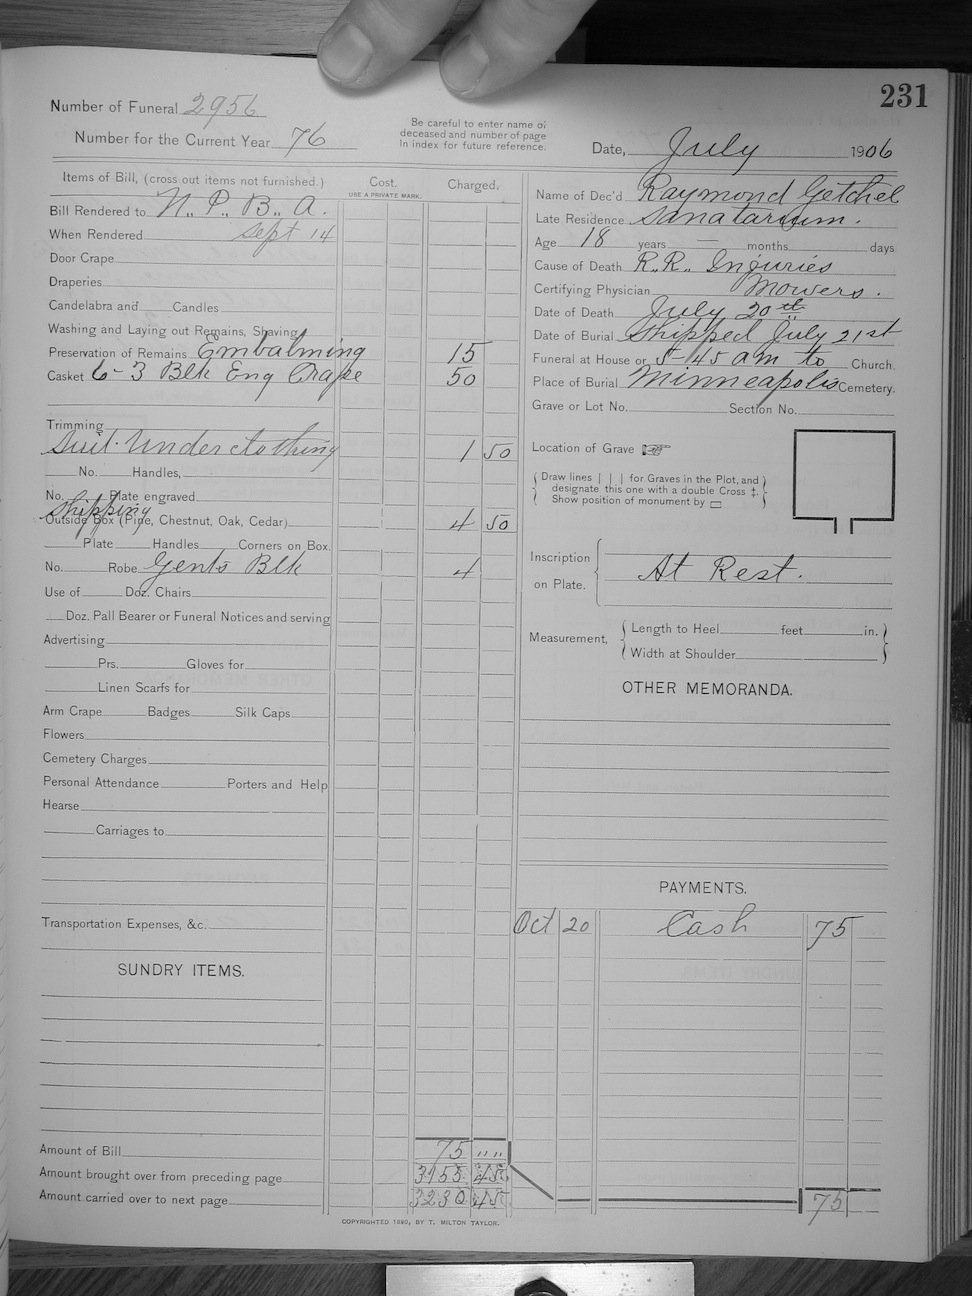 231
Number of Funeral 2956
Number for the Current Year 76
Be careful to enter name of
deceased and number of page
In index for future reference.
Date, July 1906
Items of Bill, (cross out items not furnished.)
Cost.
USE A PRIVATE MARK.
Charged.
Bill Rendered to N.. P.. B.. A.
When Rendered Sept 14
Door Crape
Draperies
Candelabra and Candles
Washing and Laying out Remains, Shaving
Preservation of Remains Embalming 15
Casket 6-3 Blk Eng Crape 50
Trimming
Suit. Underclothing 1 50
No. Handles,
No. Plate engraved
Shipping
Outside Box (Pine, Chestnut, Oak, Cedar) 4 50
Plate Handles Corners on Box
No. Robe Gents Blk 4
Use of Doz. Chairs
Doz. Pall Bearer or Funeral Notices and serving
Advertising
Prs. Gloves for
Linen Scarfs for
Arm Crape Badges Silk Caps
Flowers
Cemetery Charges
Personal Attendance Porters and Help
Hearse
Carriages to
Transportation Expenses, &c.
SUNDRY ITEMS.
Amount of Bill 75 " "
Amount brought over from preceding page 3155 45
Amount carried over to next page 3230 45
Name of Dec'd Raymond Getchel
Late Residence Sanatarium.
Age 18 years — months days
Cause of Death R.. R.. Injuries
Certifying Physician Mowers.
Date of Death July 20th
Date of Burial Shipped July 21st
Funeral at House or 5-45 am to Church.
Place of Burial Minneapolis Cemetery.
Grave or Lot No. Section No.
Location of Grave ☞
Draw lines | | | for Graves in the Plot, and
designate this one with a double Cross ‡.
Show position of monument by ▭
Inscription
on Plate.
At Rest.
Measurement,
Length to Heel feet in.
Width at Shoulder
OTHER MEMORANDA.
PAYMENTS.
Oct 20 Cash 75
75
COPYRIGHTED 1890, BY T. MILTON TAYLOR.